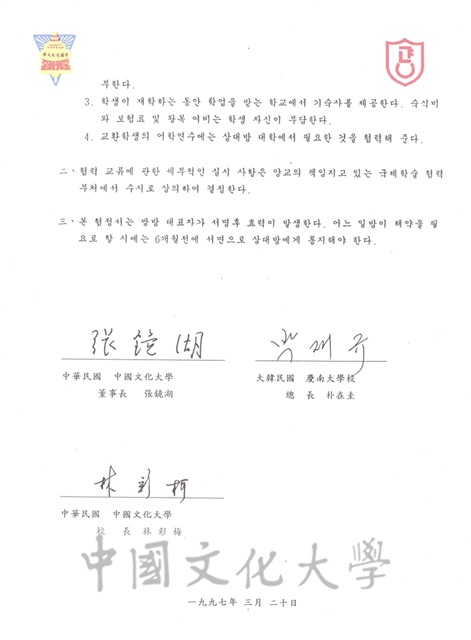 부한다.
3. 학생이 재학하는 동안 학업을 받는 학교에서 기숙사를 제공한다. 숙식비
와 보험료 및 왕복 여비는 학생 자신이 부담한다.
4. 교환학생의 어학연수에는 상대방 대학에서 필요한 것을 협력해 준다.
二、협력 교류에 관한 세부적인 실시 사항은 양교의 책임지고 있는 국제학술 협력
부처에서 수시로 상의하여 결정한다.
三、본 협정서는 쌍방 대표자가 서명후 효력이 발생한다. 어느 일방이 해약을 필
요로 할 시에는 6개월전에 서면으로 상대방에게 통지해야 한다.
張鏡湖
中華民國 中國文化大學
董事長 張鏡湖
朴在圭
大韓民國 慶南大學校
總 長 朴在圭
林彩梅
中華民國 中國文化大學
校 長 林彩梅
中國文化大學
一九九七年 三月 二十日